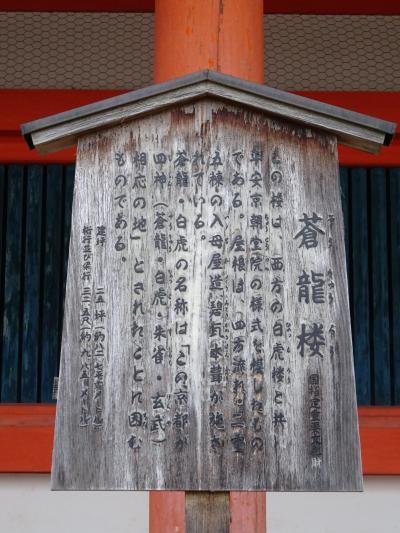 蒼龍楼
国指定重要文化財
この楼は、西方の白虎楼と共に
平安京朝堂院の様式を模したもの
である。屋根は、四方流れ二重
五棟の入母屋造、碧瓦本葺が施さ
れている。
蒼龍・白虎の名称は「この京都が
四神（蒼龍・白虎・朱雀・玄武）
相応の地」とされたことに因む
ものである。
建坪
桁行並び梁行